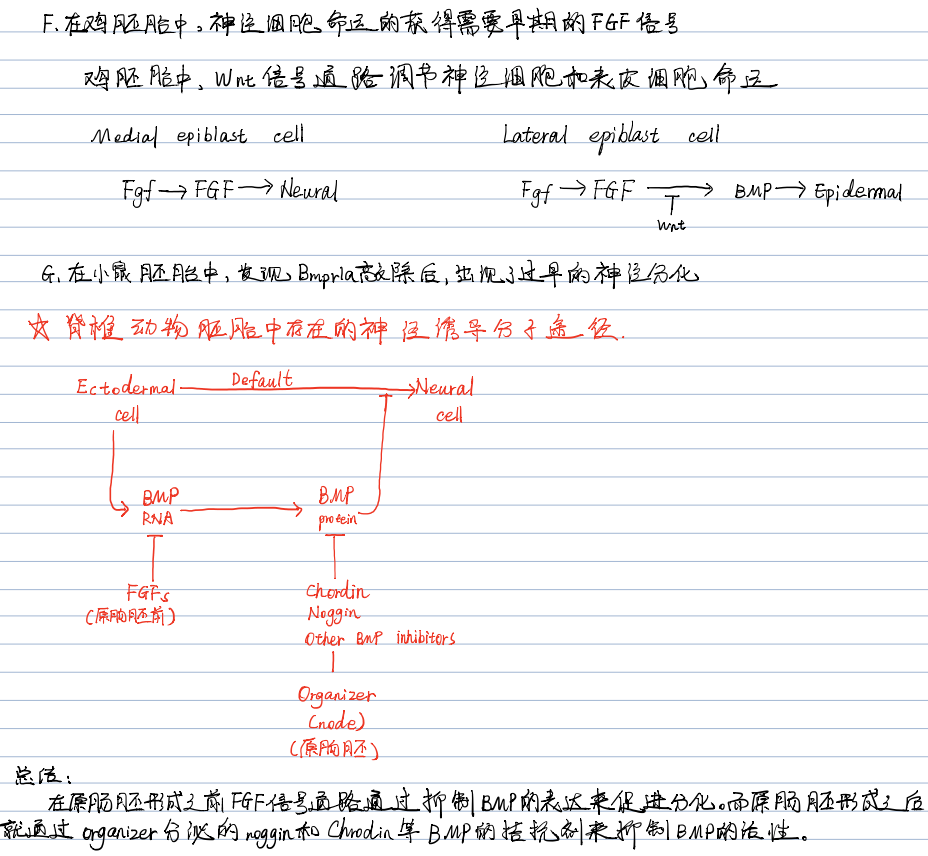 F. 在鸡胚胎中，神经细胞命运的获得需要早期的FGF信号
鸡胚胎中，Wnt信号通路调节神经细胞和表皮细胞命运
Medial epiblast cell
Lateral epiblast cell
Fgf → FGF → Neural
Fgf → FGF → BMP → Epidermal
Wnt
G. 在小鼠胚胎中，发现Bmpr1a敲除后，出现了过早的神经分化
☆ 脊椎动物胚胎中存在的神经诱导分子途径.
Ectodermal Default Neural
cell cell
BMP BMP
RNA protein
FGFs Chordin
(原肠胚前) Noggin
Other BMP inhibitors
Organizer
(node)
(原肠胚)
总结：
在原肠胚形成之前FGF信号通路通过抑制BMP的表达来促进分化。而原肠胚形成之后
就通过organizer分泌的noggin和Chrodin等BMP的拮抗剂来抑制BMP的活性。